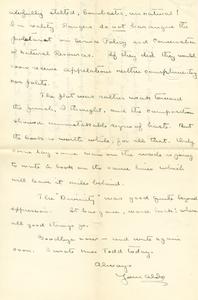 awfully stilted, bombastic, unnatural!
In reality Rangers do not harangue the
public on Service Policy and Conservation
of Natural Resources. If they did they would
soon receive appelations neither complimentary
nor polite.
The plot was rather weak toward
the finish, I thought, and the composition
showed unmistakable signs of haste. But
the book is worth while, for all that. Only
some day some man on the inside is going
to write a book on the same lines which
will leave it miles behind.
The "Divinity" was good quite beyond
expression. It has gone, where all
good things go.
Goodbye now - and write again
soon. I wrote Miss Todd today.
Always